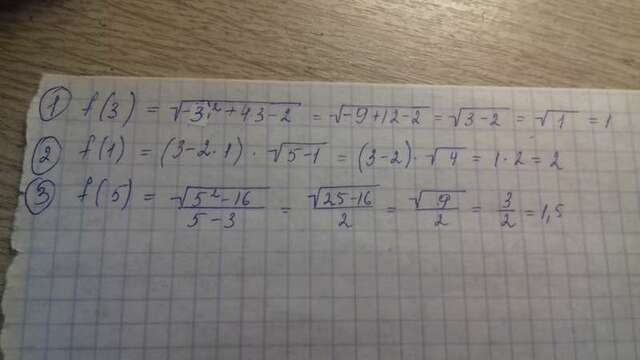 ① f(3) = √-3² + 4·3 - 2 = √-9+12-2 = √3-2 = √1 = 1
② f(1) = (3-2·1) · √5-1 = (3-2) · √4 = 1·2 = 2
③ f(5) = √5²-16 / 5-3 = √25-16 / 2 = √9 / 2 = 3/2 = 1,5